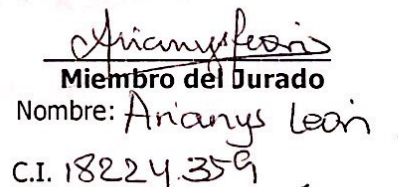 Arianys León
Miembro del Jurado
Nombre: Arianys León
C.I. 18224.359